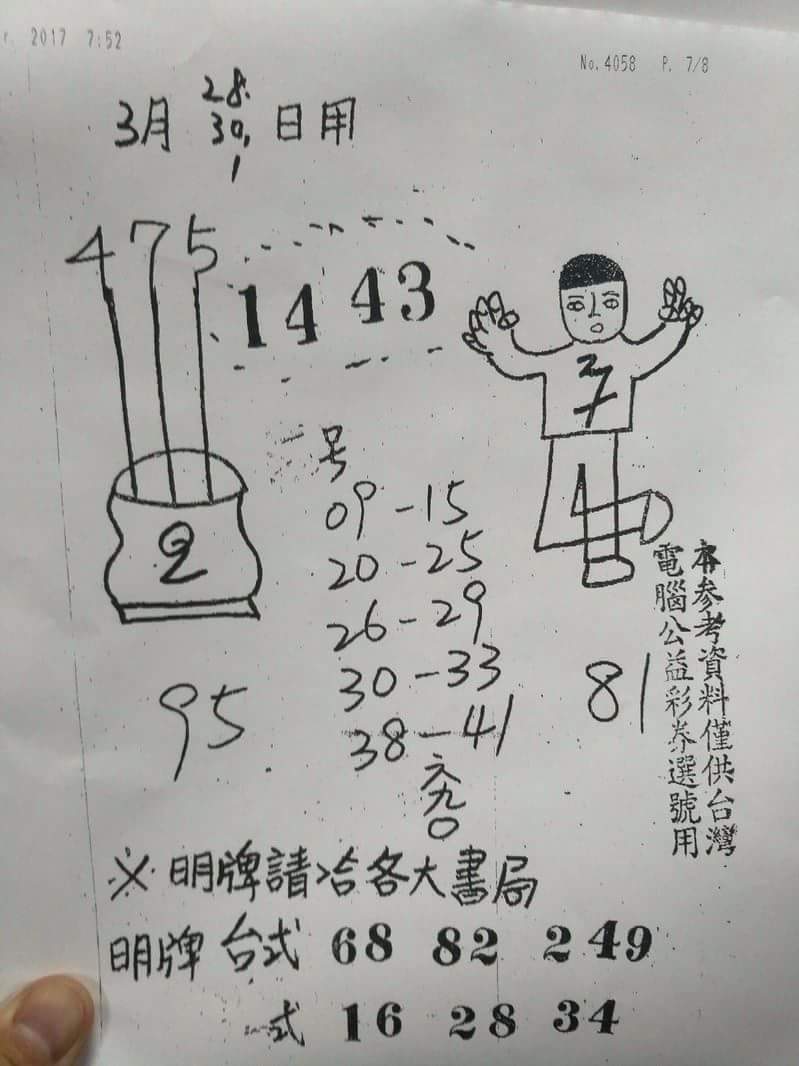 2017 7:52
No.4058 P. 7/8
3月 28. 30, 1 日用
475
14 43
2
号
09-15
20-25
26-29
30-33
38-41
六九〇
95
81
參考資料僅供台灣
電腦公益彩券選號用
※明牌請洽各大書局
明牌 台式 68 82 249
式 16 28 34